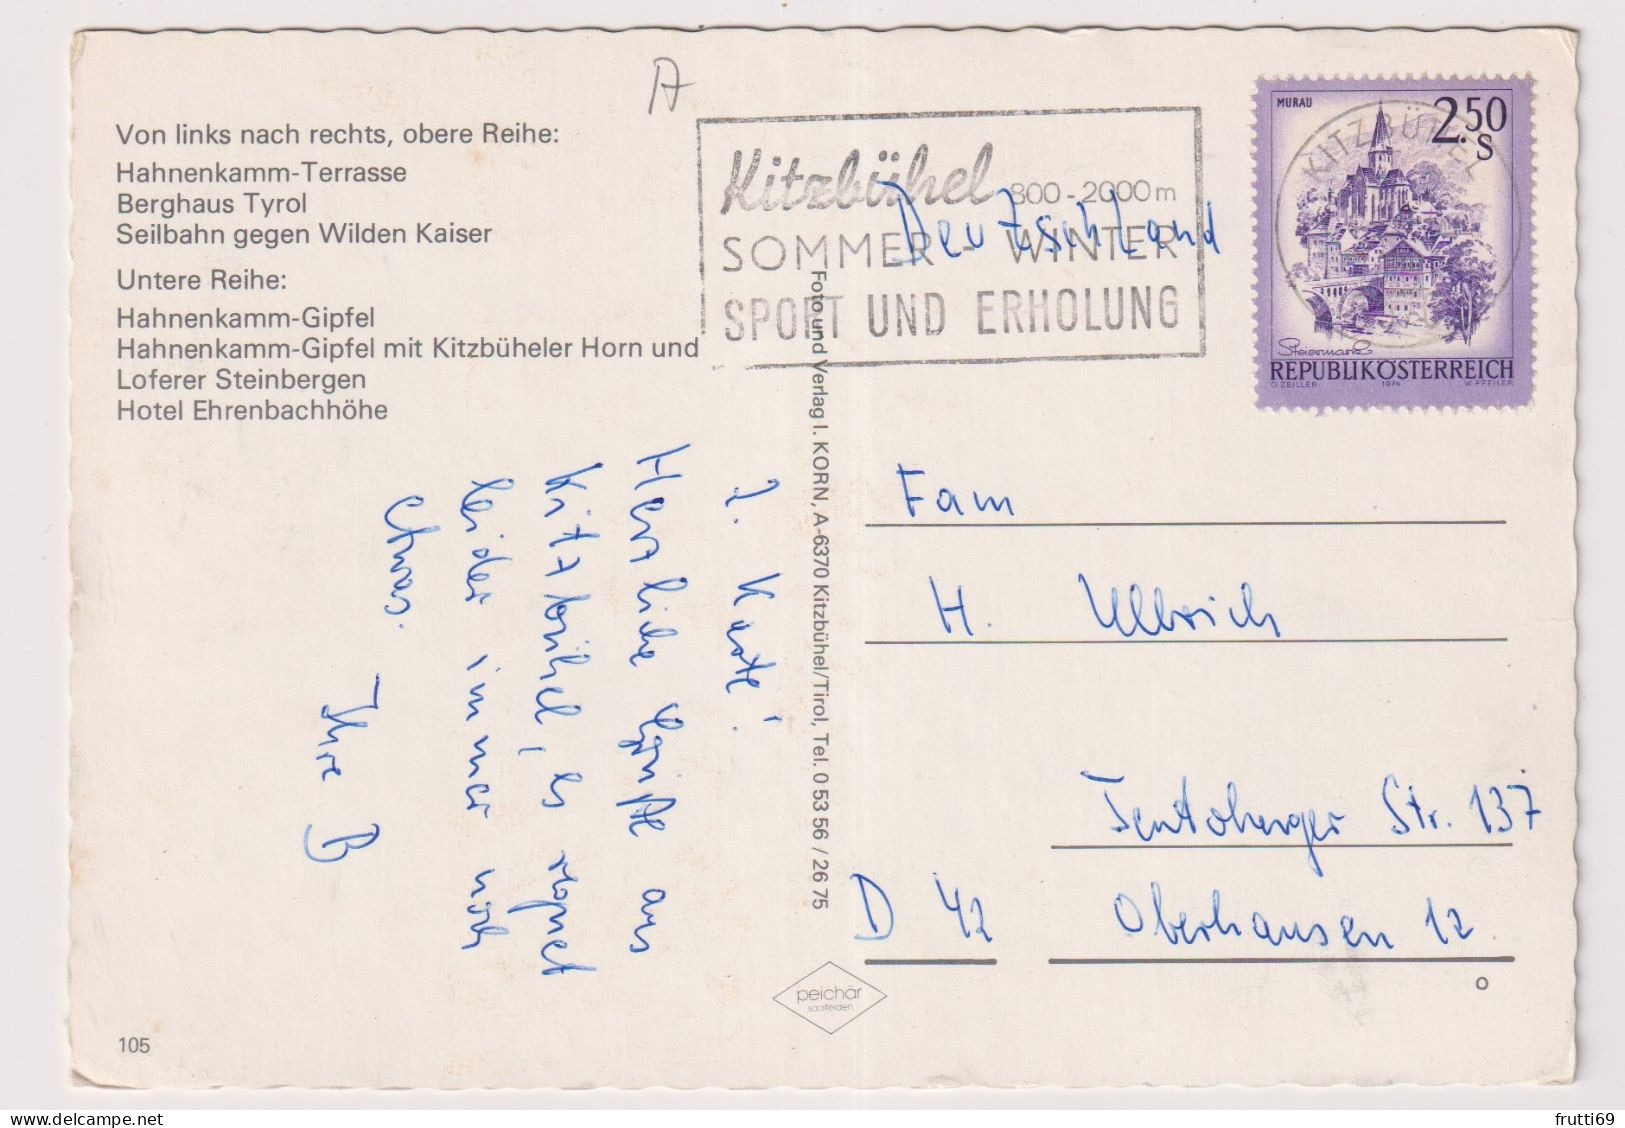 Von links nach rechts, obere Reihe:
Hahnenkamm-Terrasse
Berghaus Tyrol
Seilbahn gegen Wilden Kaiser
Untere Reihe:
Hahnenkamm-Gipfel
Hahnenkamm-Gipfel mit Kitzbüheler Horn und
Loferer Steinbergen
Hotel Ehrenbachhöhe
A
Kitzbühel 800-2000m
SOMMER - WINTER
SPORT UND ERHOLUNG
Deutzschland
MURAU
2.50
S
KITZBÜHEL
Steiermark
REPUBLIK ÖSTERREICH
O. ZEILLER 1974 W. PFEILER
2. Karte!
Herzliche Grüße aus
Kitzbühel, es regnet
leider immer noch
etwas.
Ihre B
Foto und Verlag I. KORN, A-6370 Kitzbühel/Tirol, Tel. 0 53 56 / 26 75
Fam
H. Ullrich
Teutoberger Str. 137
D 42 Oberhausen 12
peichär
saalfelden
105
frutti69